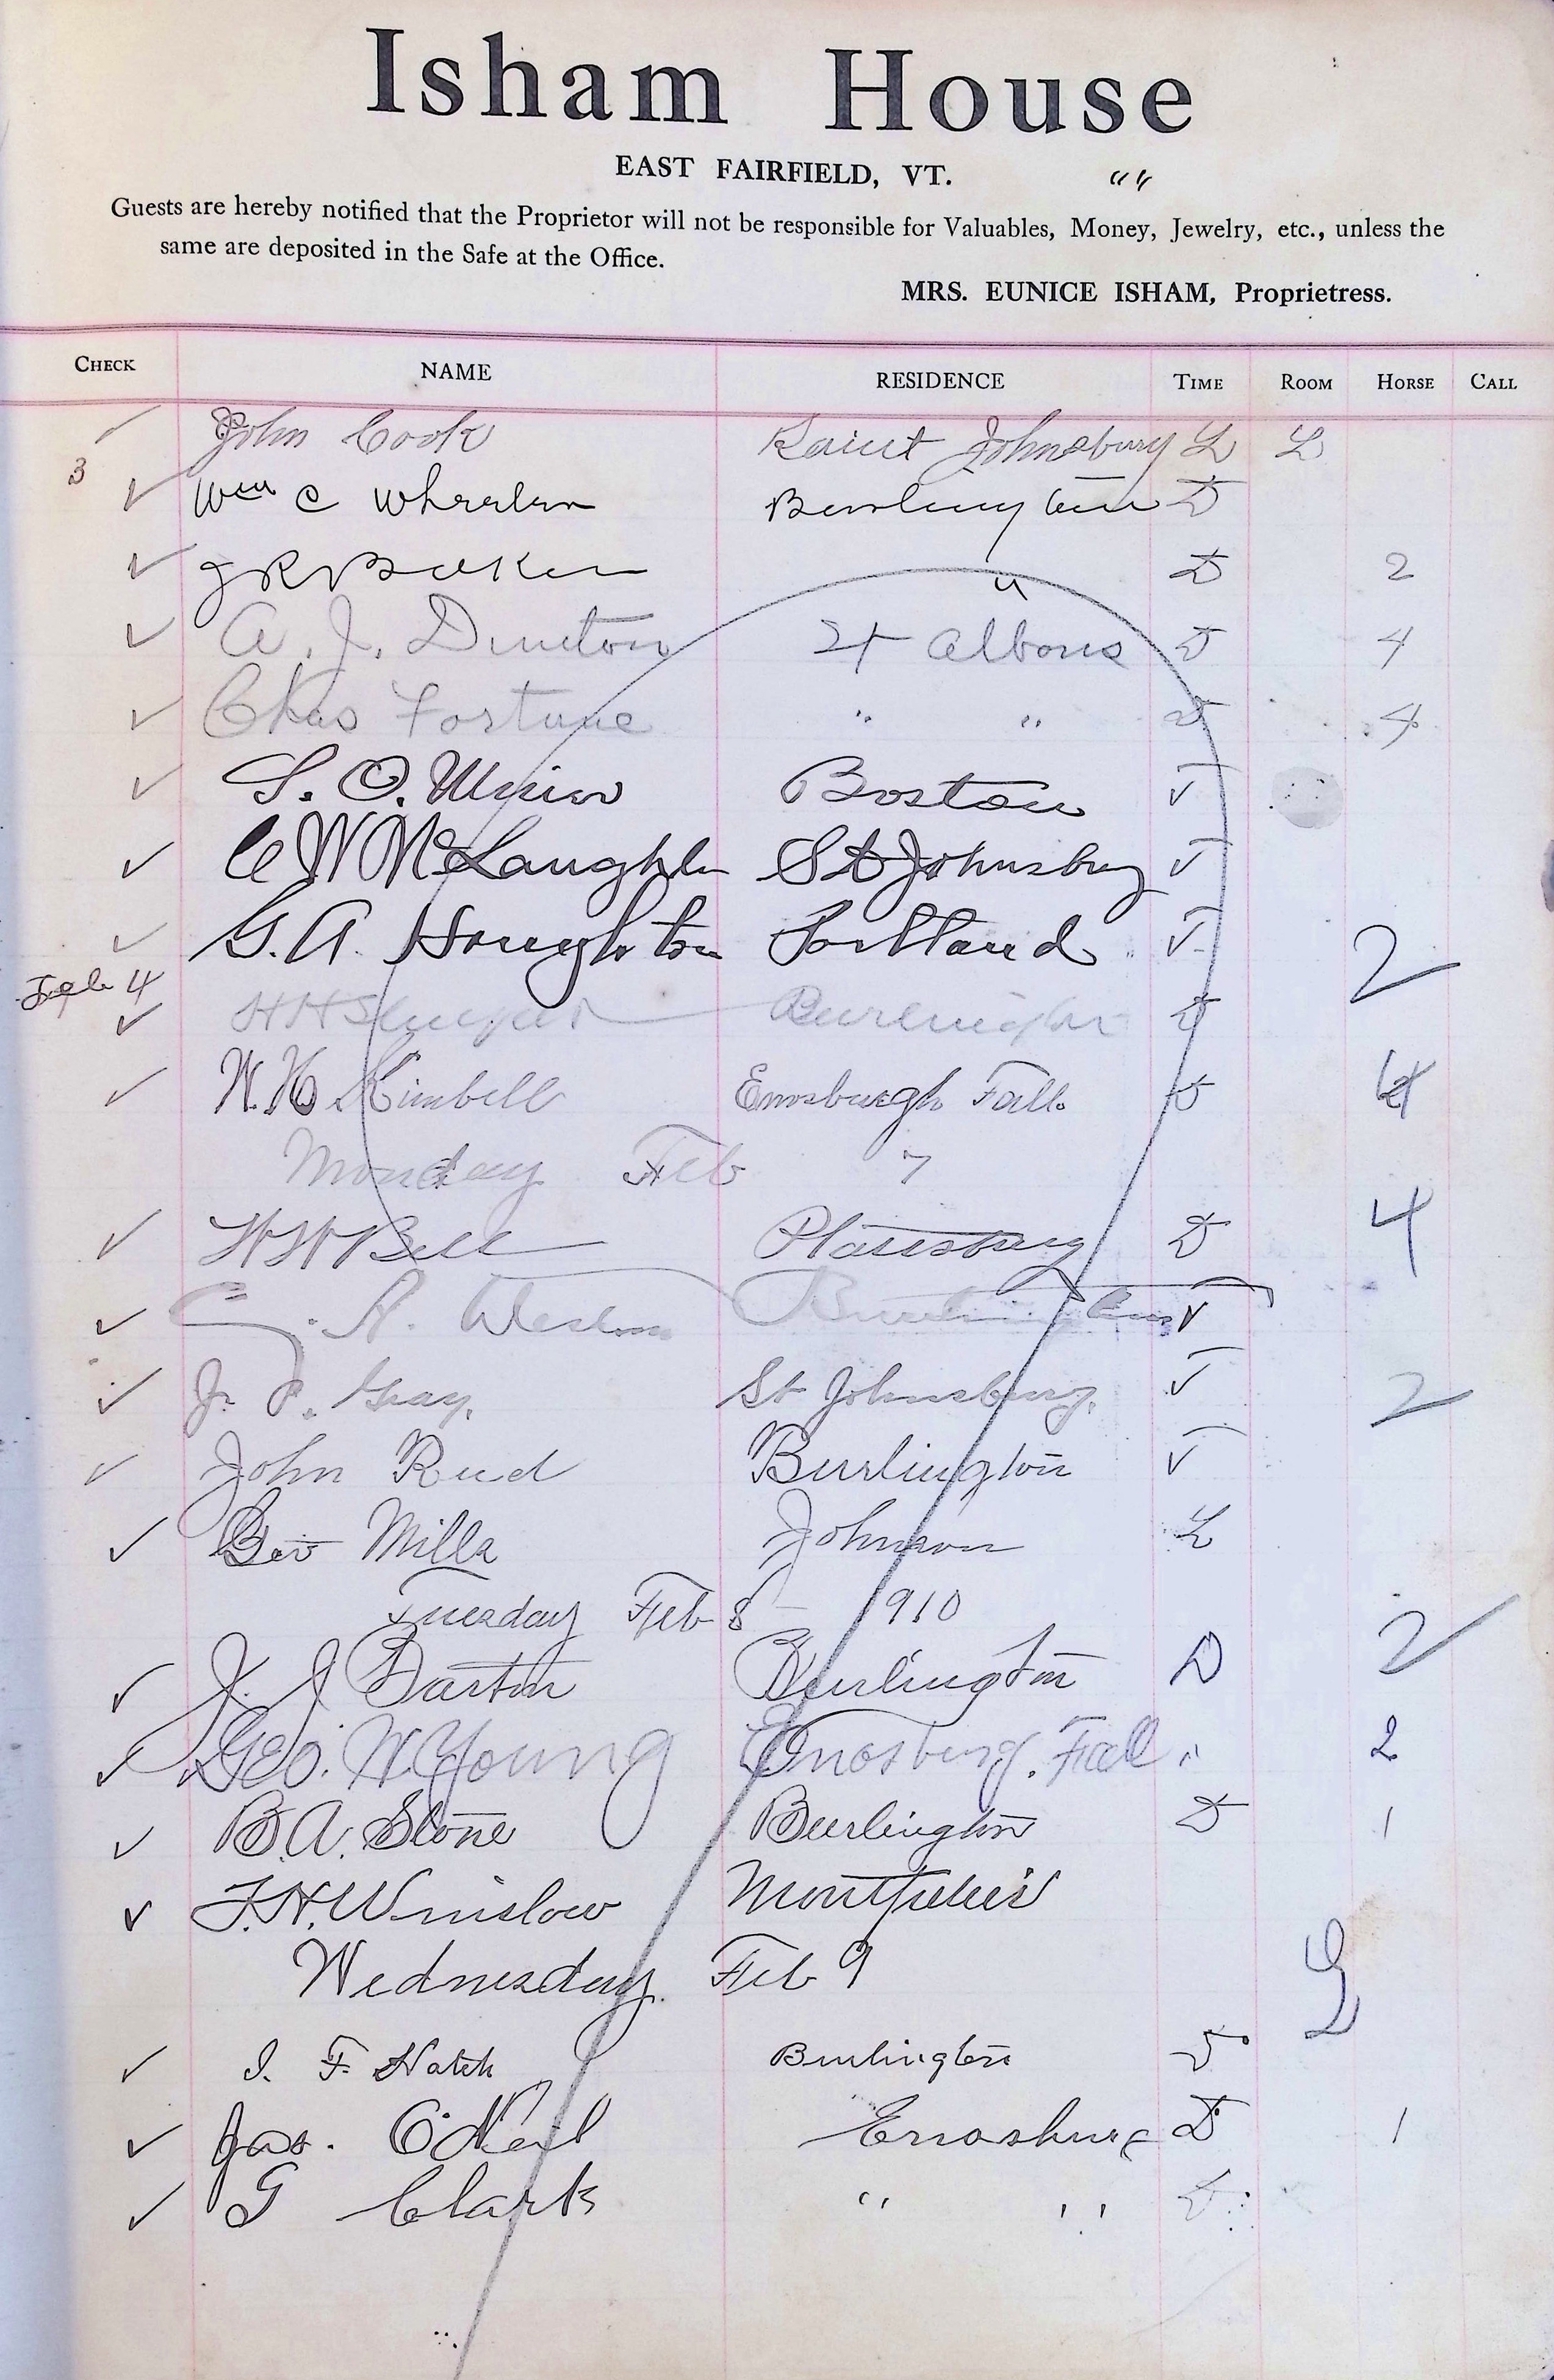 Isham House
EAST FAIRFIELD, VT. " "
Guests are hereby notified that the Proprietor will not be responsible for Valuables, Money, Jewelry, etc., unless the
same are deposited in the Safe at the Office.
MRS. EUNICE ISHAM, Proprietress.
CHECK NAME RESIDENCE TIME ROOM HORSE CALL
✓ John Cook Saint Johnsbury L L
3 ✓ Wm C Wheeler Burlington D
✓ J R Baker " D 2
✓ A. J. Dunton St Albans D 4
✓ Chas Fortune " " D 4
✓ S. O. Boston ✓
✓ C W McLaughlin St Johnsbury ✓
✓ G. A. Houghton Portland ✓ 2
Feb 4
✓ H H Burlington D
✓ W. H Kimbell Enosburgh Falls D 4
Monday Feb 7
✓ W W Bell Plattsburg D 4
✓ C. A. Weston Burlington ✓
✓ J. P. Gray. St Johnsbury. ✓ 2
✓ John Reed Burlington ✓
✓ Geo Mills Johnson L
Tuesday Feb 8 - 1910
✓ J. J Barton Burlington D 2
✓ Geo. W. Young Enosburg. Fall " 2
✓ B. A. Stone Burlington D 1
✓ F. H. Winslow Montpelier
Wednesday. Feb 9
✓ I. F. Hatch Burlington D
✓ Jas. O'Neil Enosburg D 1
✓ G Clark " " D